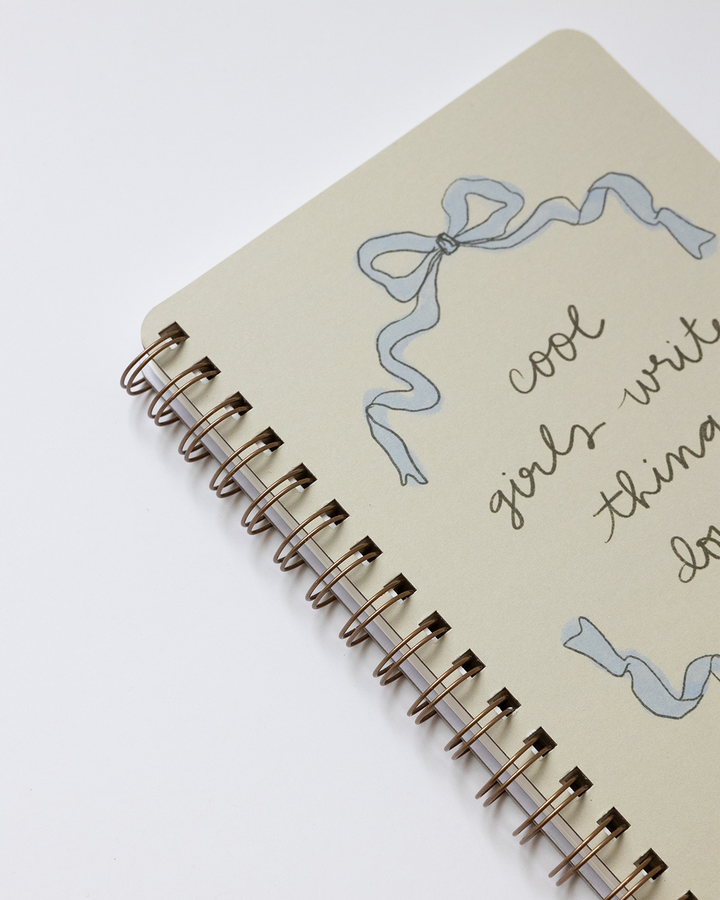 cool
girls write
thing